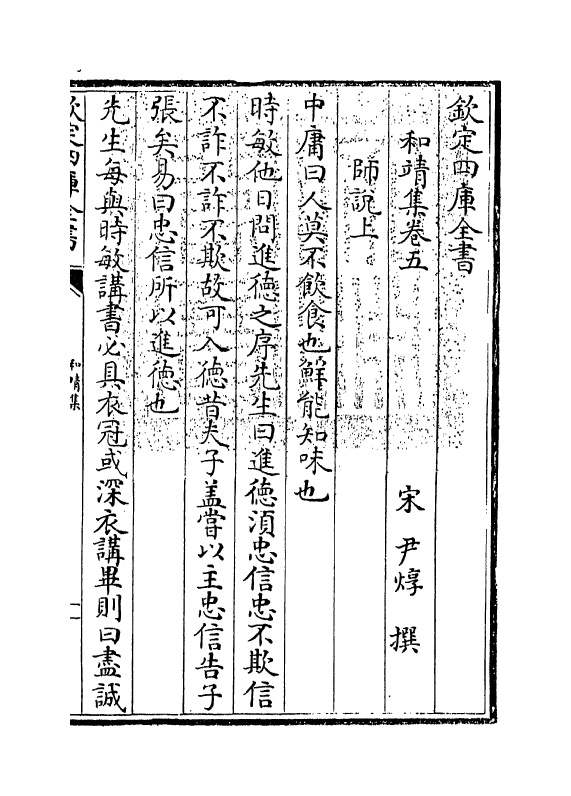 欽定四庫全書
和靖集卷五
宋 尹焞 撰
師說上
中庸曰人莫不飲食也鮮能知味也
時敏他日問進德之序先生曰進德湏忠信忠不欺信
不詐不詐不欺故可入德昔夫子盖嘗以主忠信告子
張矣易曰忠信所以進德也
先生每與時敏講書必具衣冠或深衣講畢則曰盡誠
欽定四庫全書
和靖集
一